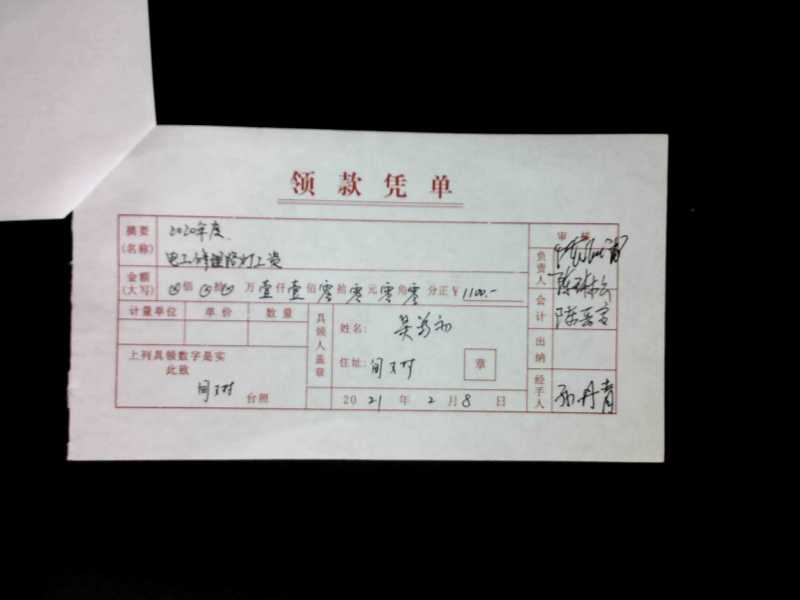 领款凭单
摘要
(名称)
2020年度
电工修理路灯工资
审核
负责人
金额
(大写)
佰 拾 万 壹仟 壹佰 零拾 零元 零角 零分正 ¥ 1100.-
计量单位 单价 数量
具领人盖章
姓名: 吴
住址: 间
章
会计
出纳
经手人
孙丹青
上列具领数字是实
此致
间 台照
2021年 2月8日